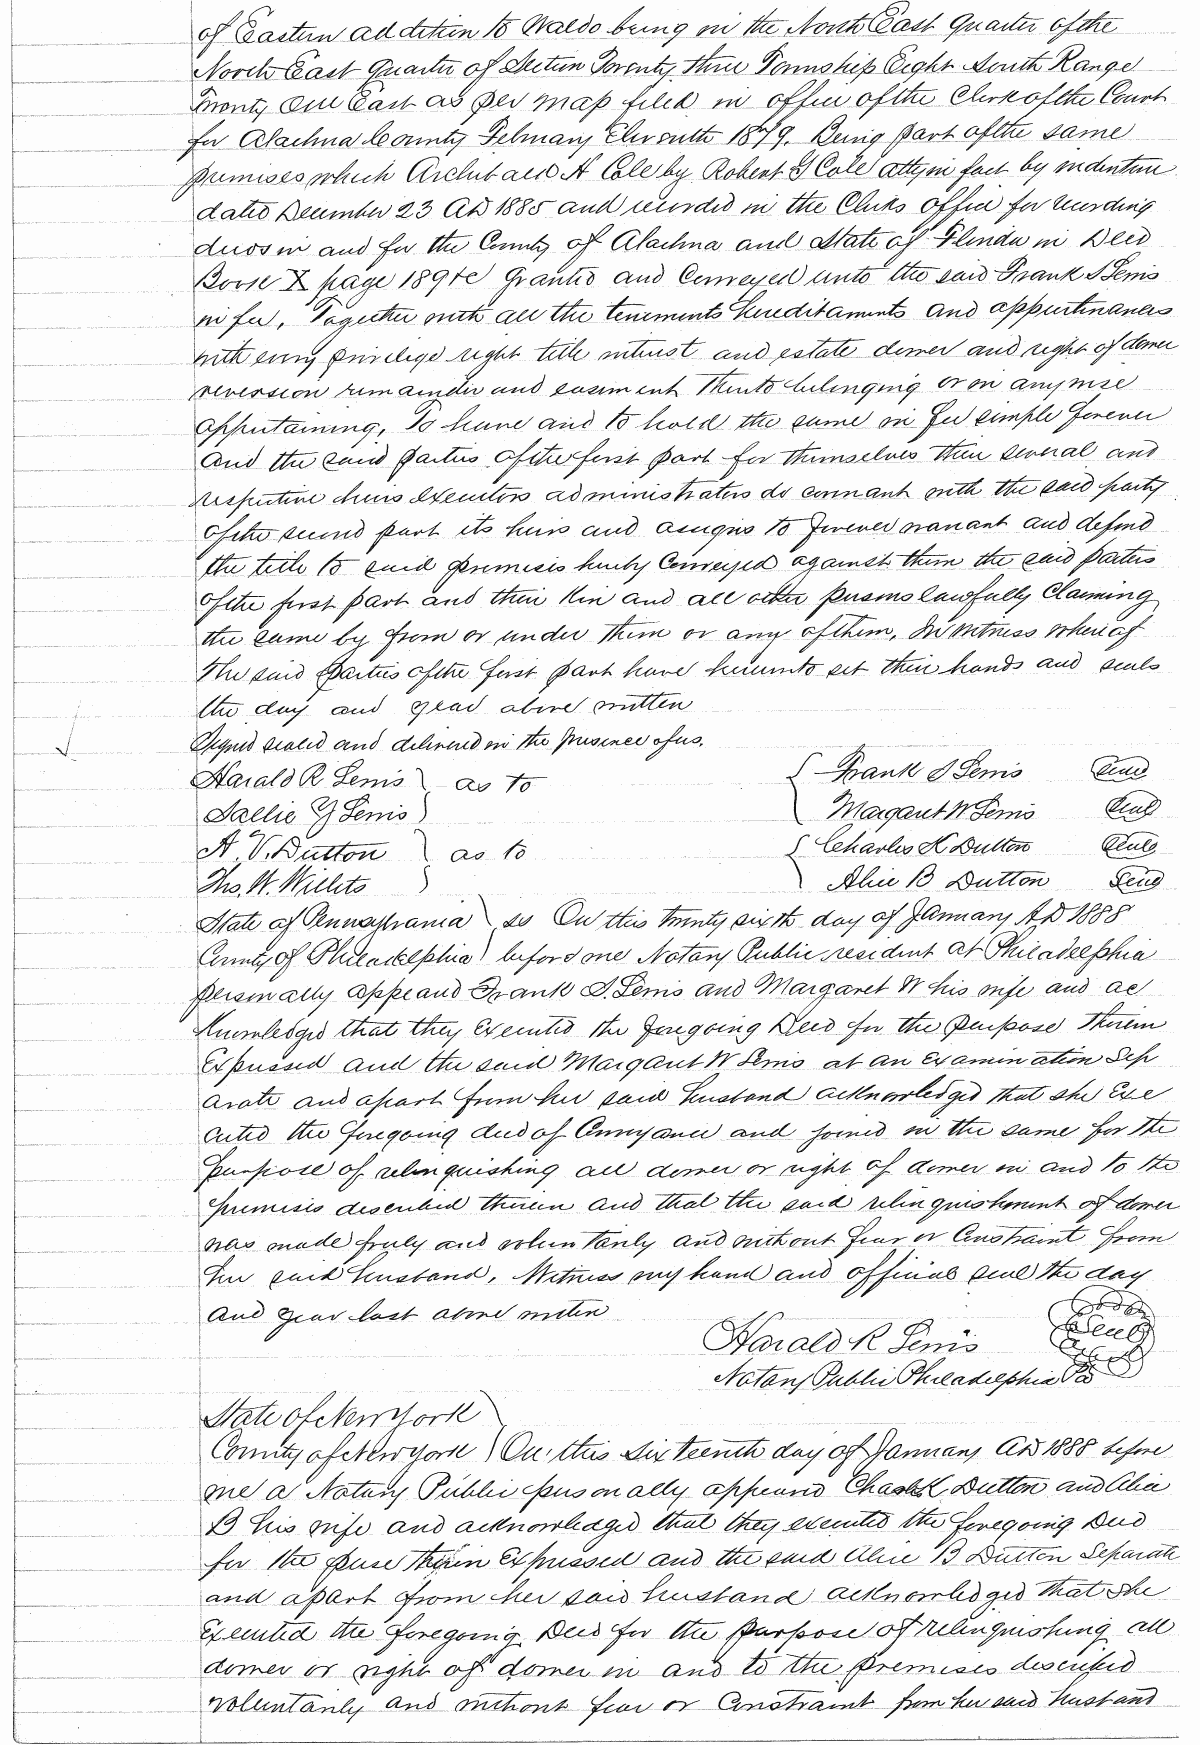 of Eastern addition to Waldo being in the North East Quarter of the
North East Quarter of Section Twenty three Township Eight South Range
Twenty One East as per map filed in office of the Clerk of the Court
for Alachua County February Eleventh 1879. Being part of the same
premises which Archibald A Cole by Robert G Cole atty in fact by indenture
dated December 23 AD 1885 and recorded in the Clerks office for recording
deeds in and for the County of Alachua and State of Florida in Deed
Book X page 189 &c Granted and Conveyed unto the said Frank S Lewis
in fee, Together with all the tenements hereditaments and appurtinances
with every privilege right title interest and estate dower and right of dower
reversion remainder and easiment thereto belonging or in anywise
appurtaining, To have and to hold the same in fee simple forever
And the said parties of the first part for themselves their several and
respective heirs executors administrators do covenant with the said party
of the second part its heirs and assigns to forever warrant and defend
the title to said premises hereby Conveyed against them the said parties
of the first part and their Kin and all other persons lawfully Claiming
the same by from or under them or any of them, In witness whereof
the said Parties of the first part have hereunto set their hands and seals
the day and year above written
Signed sealed and delivered in the presence of us.
Harald R Lewis ) as to { Frank S Lewis Seal
Sallie Y Lewis ) Margaret W Lewis Seal
A. V. Dutton ) as to { Charles K Dutton Seal
Thos. W. Willits ) Alice B Dutton Seal
State of Pennsylvania ) ss On this twenty sixth day of January AD 1888
County of Philadelphia ) before me Notary Public resident at Philadelphia
personally appeard Frank S. Lewis and Margaret W his wife and ac
Knowledged that they executed the foregoing Deed for the purpose therein
expressed and the said Margaret W Lewis at an examination sep
arate and apart from her said husband acknowledged that she exe
cuted the foregoing deed of Conveyance and joined in the same for the
purpose of relinquishing all dower or right of dower in and to the
premises described therein and that the said relinquishment of dower
was made freely and voluntarily and without fear or Constraint from
her said husband. Witness my hand and official seal the day
and year last above written
Harald R Lewis Seal
Notary Public Philadelphia Pa
State of New York )
County of New York ) On this Sixteenth day of January AD 1888 before
me a Notary Public personally appeared Chas K Dutton and Alice
B his wife and acknowledged that they executed the foregoing Deed
for the puse therein expressed and the said Alice B Dutton Separate
and apart from her said husband acknowledged that she
executed the foregoing Deed for the purpose of relinquishing all
dower or right of dower in and to the premises described
voluntarily and without fear or Constraint from her said husband